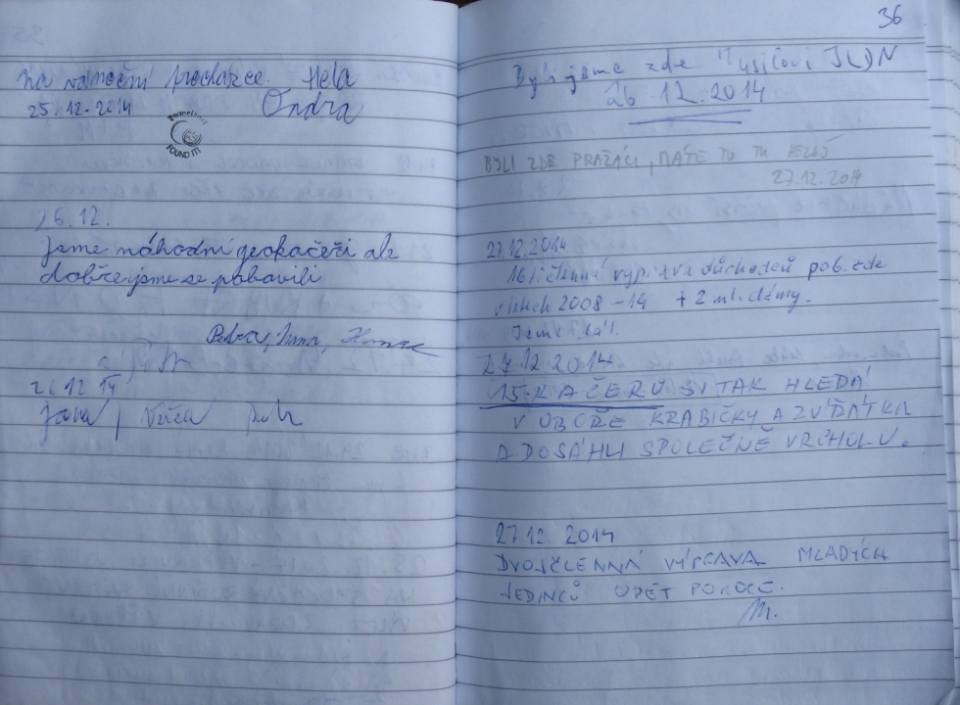 na vánoční procházce. Hela
25.12.2014 Ondra
FOUND IT!
26.12.
Jsme náhodní geokačeři ale
dobře jsme se pobavili
Petra, Hana,
26.12.14
Jana,
36
Byli jsme zde
26.12.2014
BYLI ZDE PRAŽÁCI, MÁTE TO TU
27.12.2014
27.12.2014
16ti členná výprava důchodců pob. zde
v letech 2008-14 + 2 ml. dámy.
27.12.2014
15 KAČERŮ SI TAK HLEDÁ
V OBOŘE KRABIČKY A ZVÍŘÁTKA
A DOSÁHLI SPOLEČNĚ VRCHOLU.
27.12.2014
DVOJČLENNÁ VÝPRAVA MLADÝCH
JEDINCŮ OPĚT PO ROCE.
M.